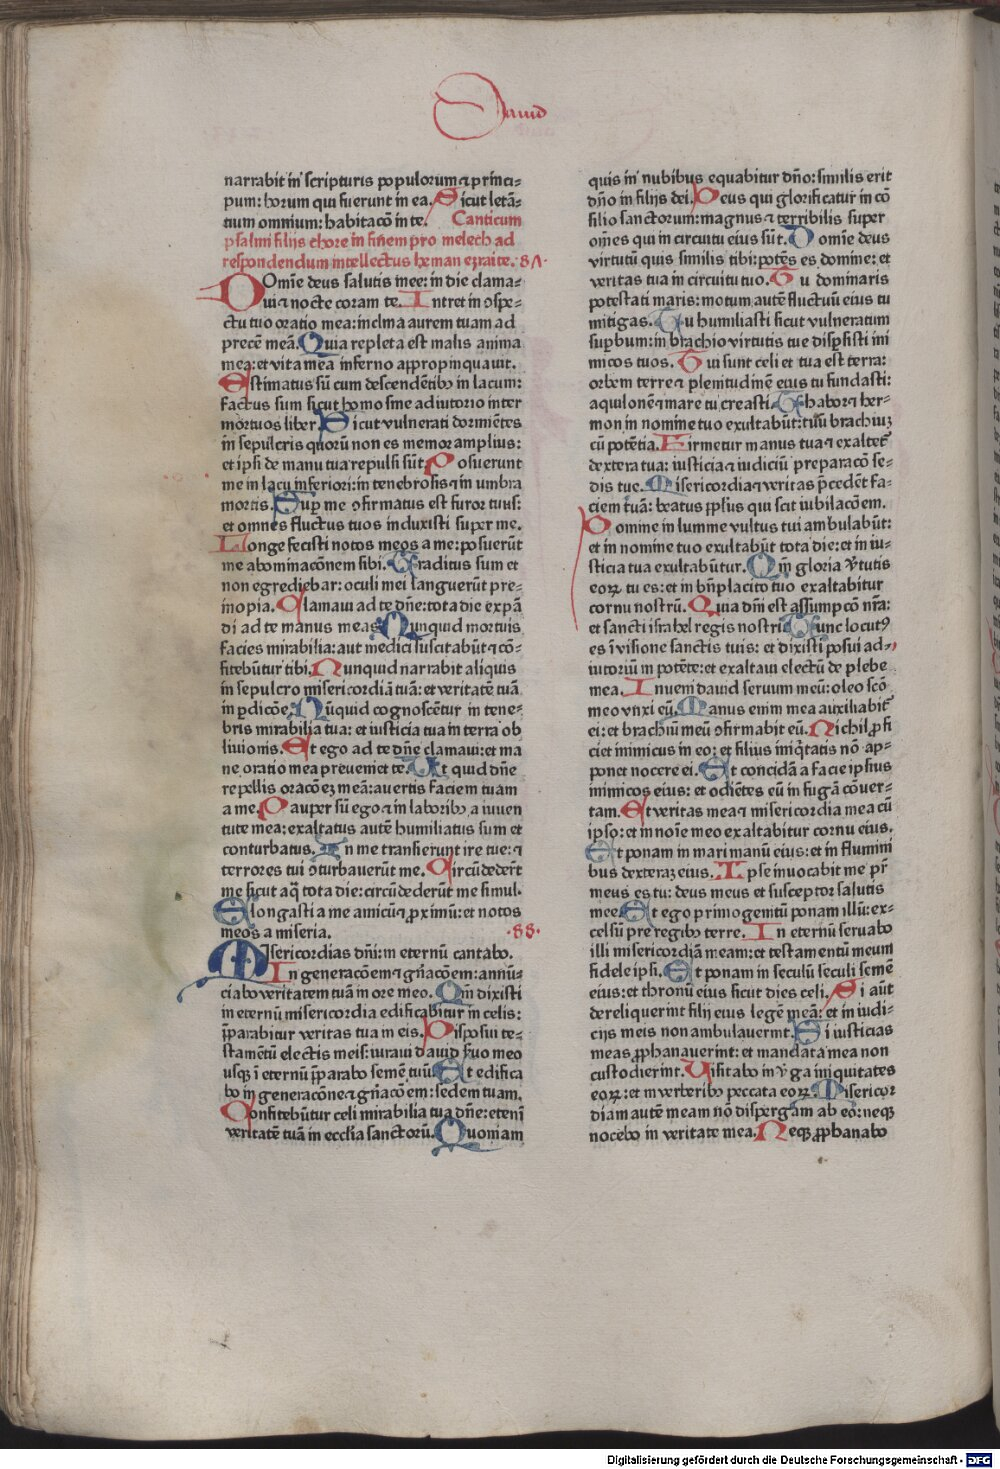 Dauid
narrabit in scripturis populorum ⁊ princi⸗
pum: horum qui fuerunt in ea. Sicut letā⸗
tium omnium: habitacō in te. Canticum
psalmi filijs chore in finem pro melech ad
respondendum intellectus heman ezraite. ·87·
DOmīe deus salutis mee: in die clama⸗
ui ⁊ nocte coram te. Intret in ɔspe⸗
ctu tuo oratio mea: inclina aurem tuam ad
precē meā. Quia repleta est malis anima
mea: et vita mea inferno appropinquauit.
Estimatus sū cum descendētibꝫ in lacum:
factus sum sicut homo sine adiutorio inter
mortuos liber. Sicut vulnerati dormiētes
in sepulcris quorū non es memor amplius:
et ipsi de manu tua repulsi sūt. Posuerunt
me in lacu inferiori: in tenebrosis ⁊ in umbra
mortis. Suꝑ me ɔfirmatus est furor tuus:
et omnes fluctus tuos induxisti super me.
Longe fecisti notos meos a me: posuerūt
me abominacōnem sibi. Traditus sum et
non egrediebar: oculi mei languerūt pre
inopia. Clamaui ad te dn̄e: tota die expā
di ad te manus meas. Nunquid mortuis
facies mirabilia: aut medici suscitabūt ⁊ cō⸗
fitebūtur tibi. Nunquid narrabit aliquis
in sepulcro misericordiā tuā: et veritatē tuā
in ꝑdicōe. Nūquid cognoscētur in tene⸗
bris mirabilia tua: et iusticia tua in terra ob
liuionis. Et ego ad te dn̄e clamaui: et ma
ne oratio mea preueniet te. Ut quid dn̄e
repellis oracōeꝫ meā: auertis faciem tuam
a me. Pauper sū ego ⁊ in laboribꝫ a iuuen
tute mea: exaltatus autē humiliatus sum et
conturbatus. In me transierunt ire tue: ⁊
terrores tui ɔturbauerūt me. Circūdederūt
me sicut aq̄ tota die: circūdederūt me simul.
Elongasti a me amicū ⁊ ꝓximū: et notos
meos a miseria. ·88·
MIsericordias dn̄i: in eternū cantabo.
In generacōem ⁊ gn̄acōem: annū⸗
ciabo veritatem tuā in ore meo. Qm̄ dixisti
in eternū misericordia edificabitur in celis:
p̄parabitur veritas tua in eis. Disposui te⸗
stamētū electis meis: iuraui dauid ẜuo meo
usqꝫ ī eternū p̄parabo semē tuū. Et edifica
bo in generacōne ⁊ gn̄acōem: sedem tuam.
Confitebūtur celi mirabilia tua dn̄e: etenī
veritatē tuā in ecclīa sanctorū. Quoniam
quis in nubibus equabitur dn̄o: similis erit
dn̄o in filijs dei. Deus qui glorificatur in cō
silio sanctorum: magnus ⁊ terribilis super
om̄es qui in circuitu eius sūt. Domīe deus
virtutū quis similis tibi: potēs es domine: et
veritas tua in circuitu tuo. Tu dominaris
potestati maris: motum autē fluctuū eius tu
mitigas. Tu humiliasti sicut vulneratum
suꝑbum: in brachio virtutis tue disꝑsisti ini
micos tuos. Tui sunt celi et tua est terra:
orbem terre ⁊ plenitudinē eius tu fundasti:
aquilonē ⁊ mare tu creasti. Thabor ⁊ her⸗
mon in nomine tuo exultabūt: tuū brachiuꝫ
cū potētia. Firmetur manus tua ⁊ exaltet᷑
dextera tua: iusticia ⁊ iudiciū preparacō se⸗
dis tue. Misericordia ⁊ veritas p̄cedēt fa⸗
ciem tuā: beatus ppl̄us qui scit iubilacōem.
Domine in lumine vultus tui ambulabūt:
et in nomine tuo exultabūt tota die: et in iu⸗
sticia tua exaltabūtur. Qm̄ gloria v̄tutis
eoꝝ tu es: et in bn̄placito tuo exaltabitur
cornu nostrū. Quia dn̄i est assumpcō nr̄a:
et sancti israhel regis nostri. Tunc locutꝰ
es ī visione sanctis tuis: et dixisti posui ad⸗
iutoriū in potēte: et exaltaui electū de plebe
mea. Inueni dauid seruum meū: oleo scō
meo vnxi eū. Manus enim mea auxiliabit᷑
ei: et brachiū meū ɔfirmabit eū. Nichil ꝓfi
ciet inimicus in eo: et filius iniq̄tatis nō ap⸗
ponet nocere ei. Et concidā a facie ipsius
inimicos eius: et odiētes eū in fugā cōuer⸗
tam. Et veritas mea ⁊ misericordia mea cū
ipso: et in noīe meo exaltabitur cornu eius.
Et ponam in mari manū eius: et in flumini
bus dexteraꝫ eius. Ipse inuocabit me pr̄
meus es tu: deus meus et susceptor salutis
mee. Et ego primogenitū ponam illū: ex⸗
celsū pre regibꝫ terre. In eternū seruabo
illi misericordiā meam: et testamentū meum
fidele ipsi. Et ponam in seculū seculi semē
eius: et thronū eius sicut dies celi. Si aūt
dereliquerint filij eius legē meā: et in iudi⸗
cijs meis non ambulauerint. Si iusticias
meas ꝓphanauerint: et mandata mea non
custodierint. Visitabo in v̄ga iniquitates
eoꝝ: et in verberibꝫ peccata eoꝝ. Misericor
diam autē meam nō dispergam ab eo: neqꝫ
nocebo in veritate mea. Neqꝫ ꝓphanabo
Digitalisierung gefördert durch die Deutsche Forschungsgemeinschaft - DFG